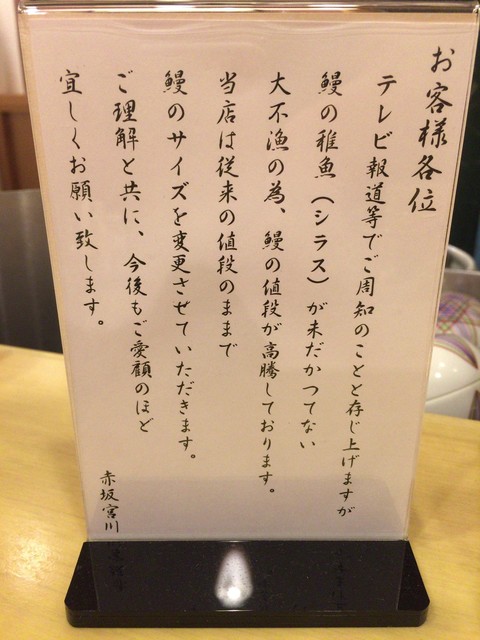 お客様各位
テレビ報道等でご周知のことと存じ上げますが
鰻の稚魚（シラス）が未だかつてない
大不漁の為、鰻の値段が高騰しております。
当店は従来の値段のままで
鰻のサイズを変更させていただきます。
ご理解と共に、今後もご愛顧のほど
宜しくお願い致します。
赤坂宮川